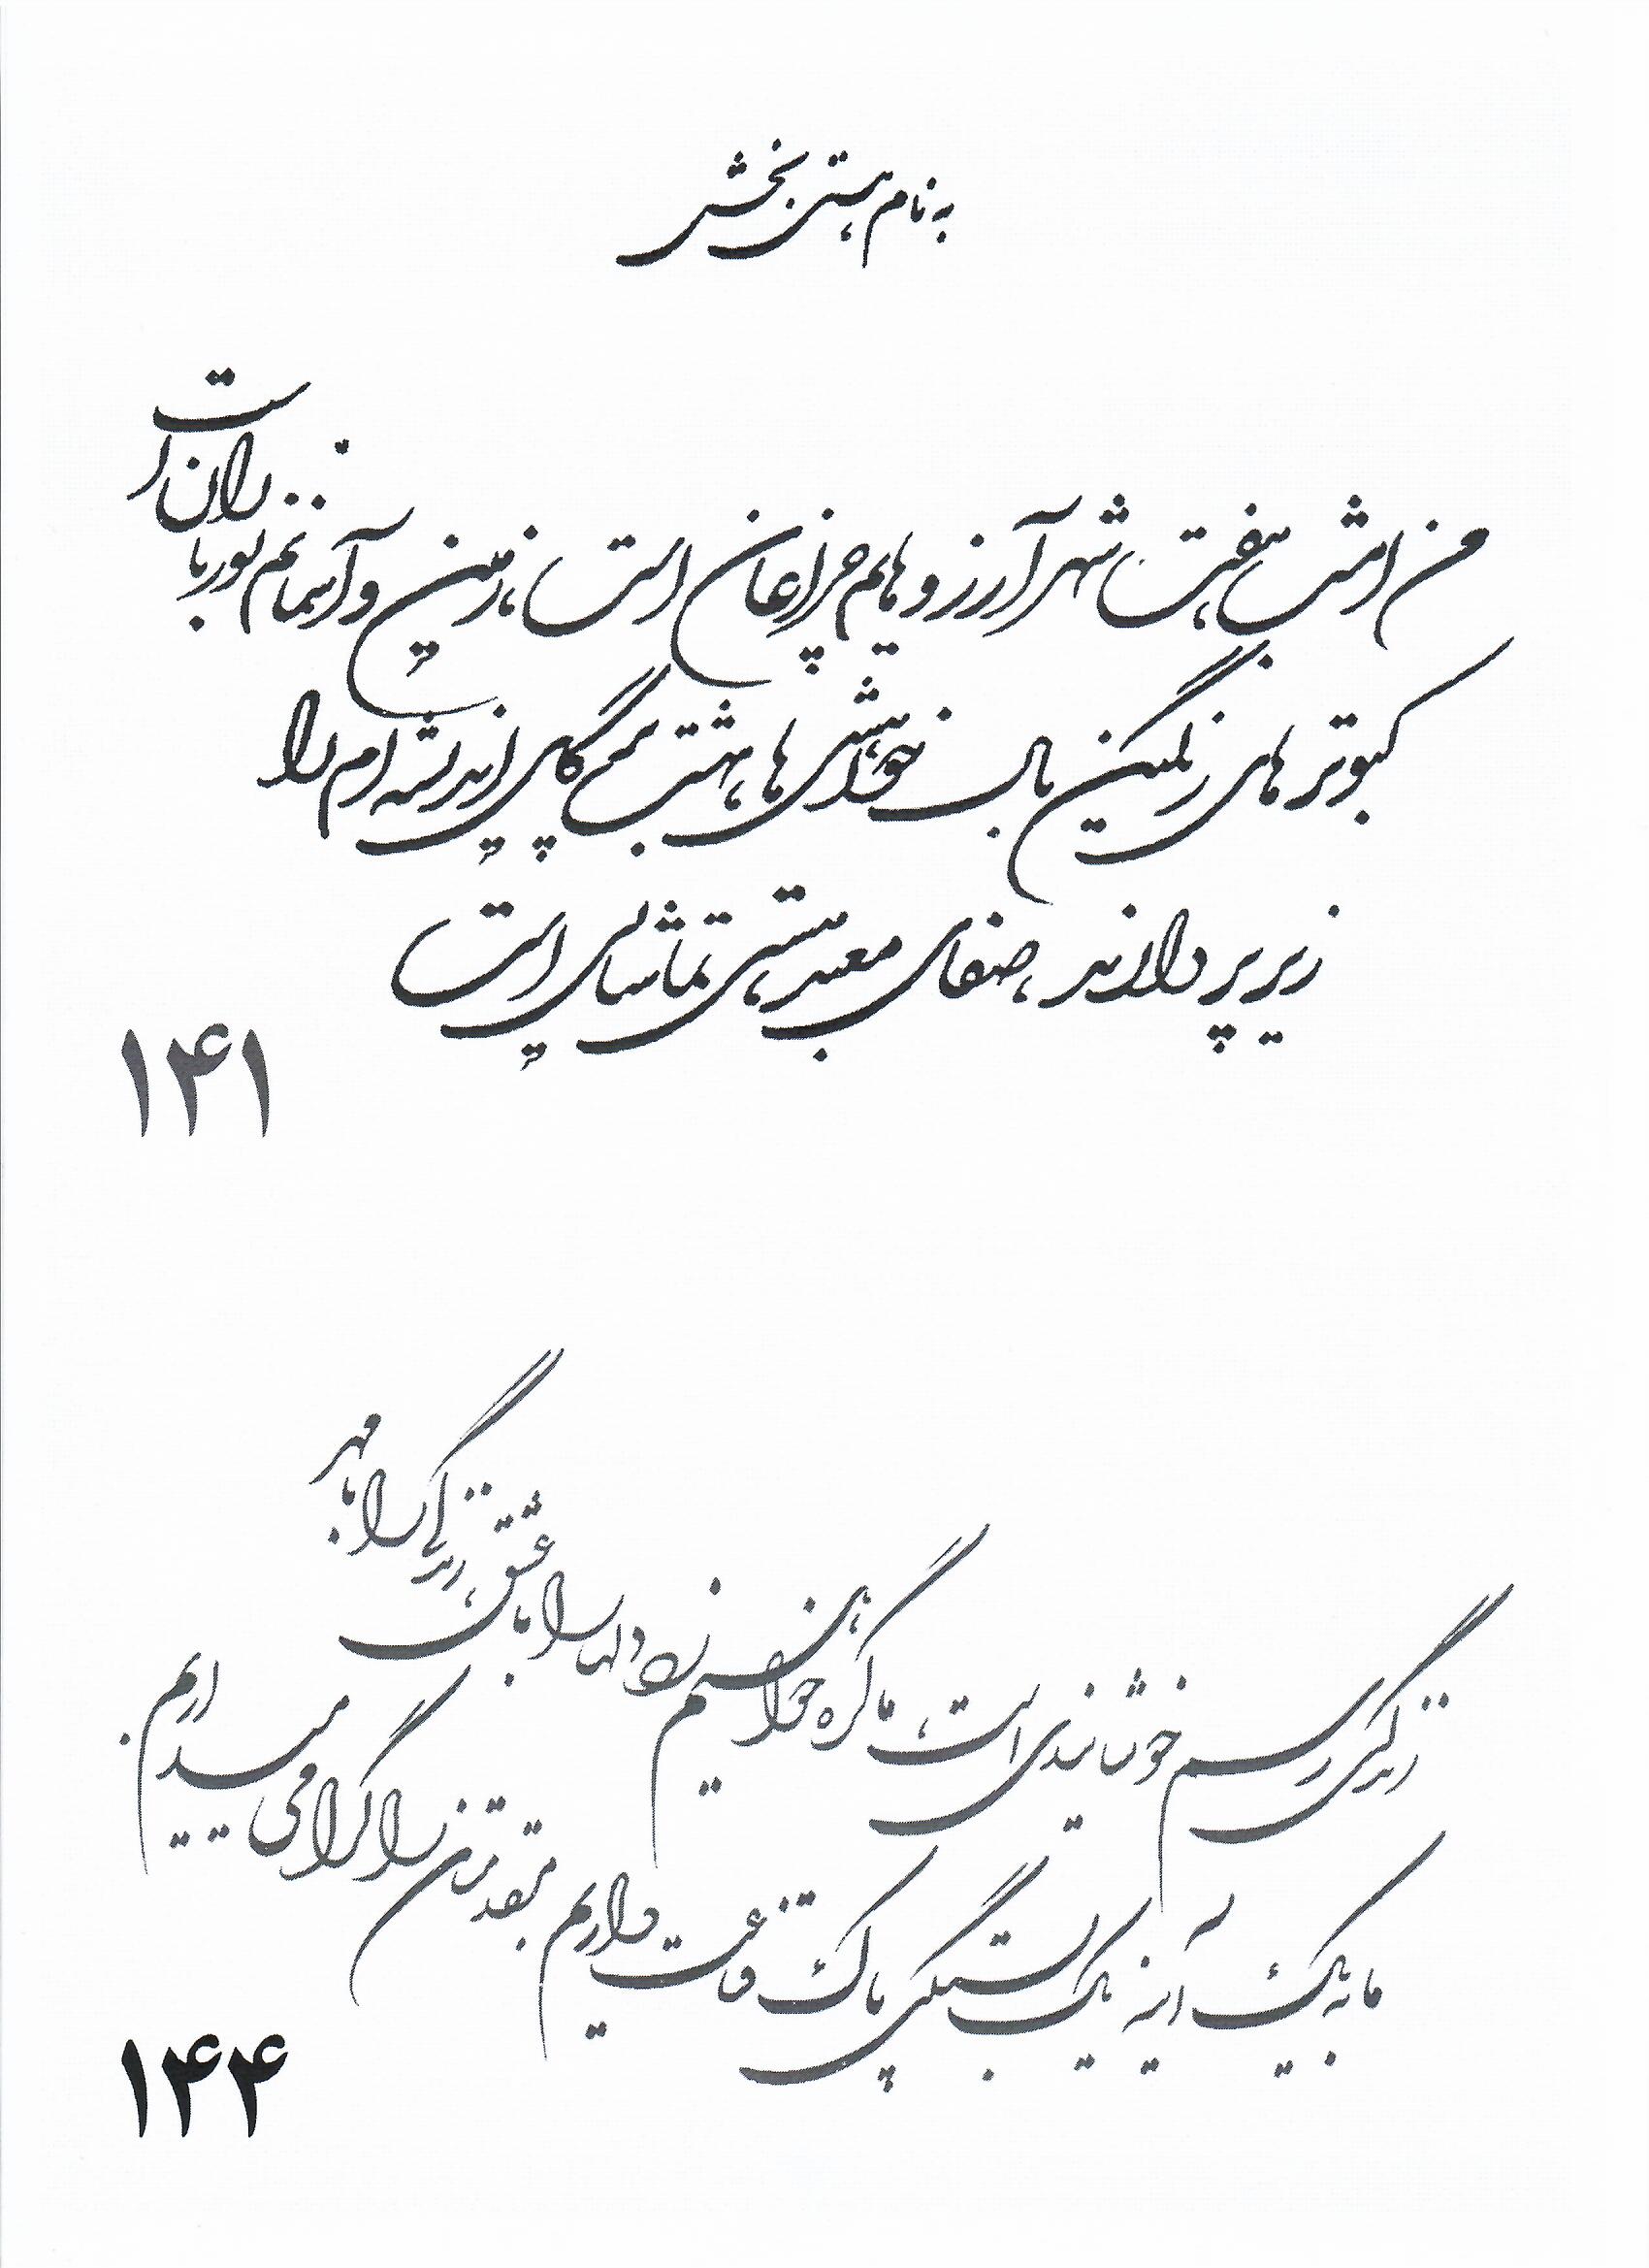 به نام هستی بخش
من امشب هفت شهر آرزوهایم چراغان است ، زمین و آسمانم نورباران است
کبوترهای رنگین بال خواهش ها ، بهشت اندیشه ام را
زیر پر دارند ، صفای معبد هستی تماشایی است
۱۴۱
زندگی رسم خوشایندی است ، ما گره خواهیم زد دلها را با عشق ، زندگی را با مهر
ما به یک آینه یک بستگی پاک قناعت داریم مقدمتان را گرامی میداریم .
۱۴۴